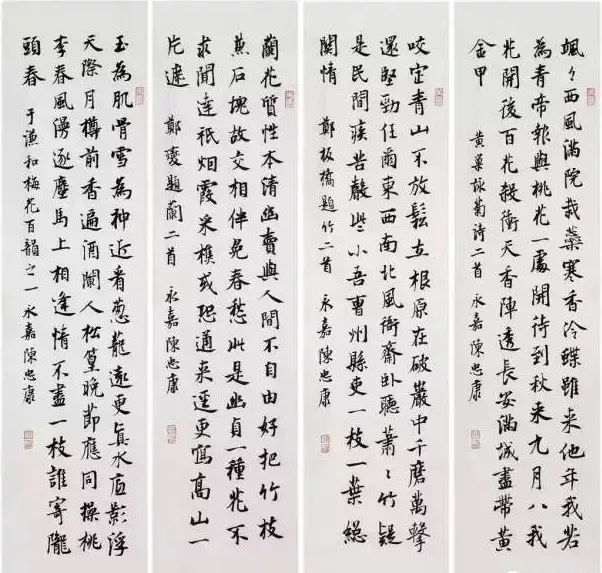 颯々西風滿院栽蘂寒香冷蝶難来他年我若
為青帝報與桃花一處開待到秋来九月八我
花開後百花殺衝天香陣透長安滿城盡帶黄
金甲 黄巢詠菊詩二首 永嘉陳忠康
咬定青山不放鬆立根原在破巖中千磨萬擊
還堅勁任爾東西南北風衙齋卧聽蕭々竹疑
是民間疾苦聲些小吾曹州縣吏一枝一葉總
關情 鄭板橋題竹二首 永嘉陳忠康
蘭花質性本清幽賣與人間不自由好把竹枝
兼石塊故交相伴免春愁此是幽貞一種花不
求聞達衹烟霞采樵或恐通来逕更寫高山一
片遮 鄭燮題蘭二首 永嘉陳忠康
玉為肌骨雪為神近看葱蘢遠更真水面影浮
天際月樽前香遍酒闌人松篁晚節應同操桃
李春風謾逐塵馬上相逢情不盡一枝誰寄隴
頭春 于謙和梅花百韻之一 永嘉陳忠康